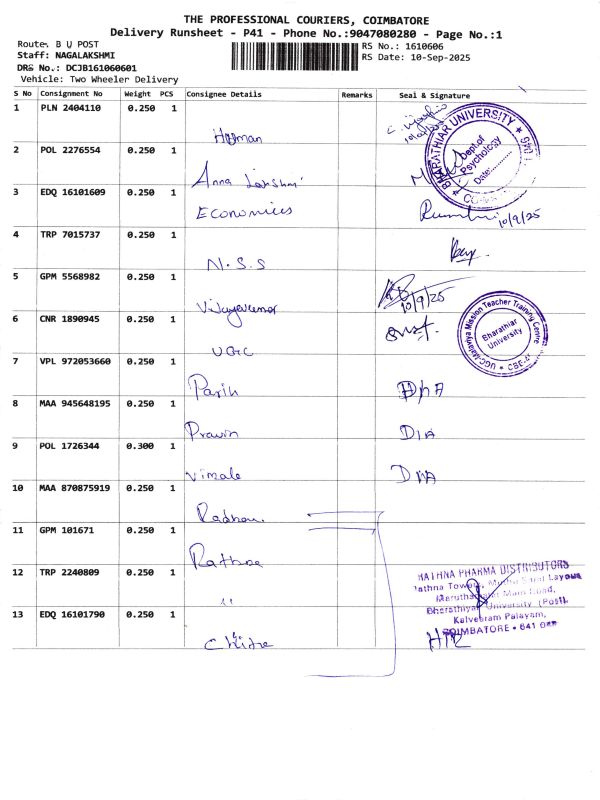 THE PROFESSIONAL COURIERS, COIMBATORE
Delivery Runsheet - P41 - Phone No.:9047080280 - Page No.:1
Route: B U POST
RS No.: 1610606
Staff: NAGALAKSHMI
RS Date: 10-Sep-2025
DRS No.: DCJB161060601
Vehicle: Two Wheeler Delivery
S No Consignment No Weight PCS Consignee Details Remarks Seal & Signature
1 PLN 2404110 0.250 1
BHARATHIAR UNIVERSITY
Dept.of
Psychology
Date:
2 POL 2276554 0.250 1
Anna Lakshmi
3 EDQ 16101609 0.250 1
Economics
10/9/25
4 TRP 7015737 0.250 1
N.S.S
5 GPM 5568982 0.250 1
Vijayakumar
10/9/25
6 CNR 1890945 0.250 1
UGC
UGC-Malaviya Mission Teacher Training Centre
Bharathiar
University
7 VPL 972053660 0.250 1
8 MAA 945648195 0.250 1
Pravin
9 POL 1726344 0.300 1
Vimale
10 MAA 870875919 0.250 1
11 GPM 101671 0.250 1
12 TRP 2240809 0.250 1
RATHNA PHARMA DISTRIBUTORS
Rathna Towers, Layout
Main Road,
Bharathiyar University (Post),
Kalveeram Palayam,
COIMBATORE - 641
13 EDQ 16101790 0.250 1